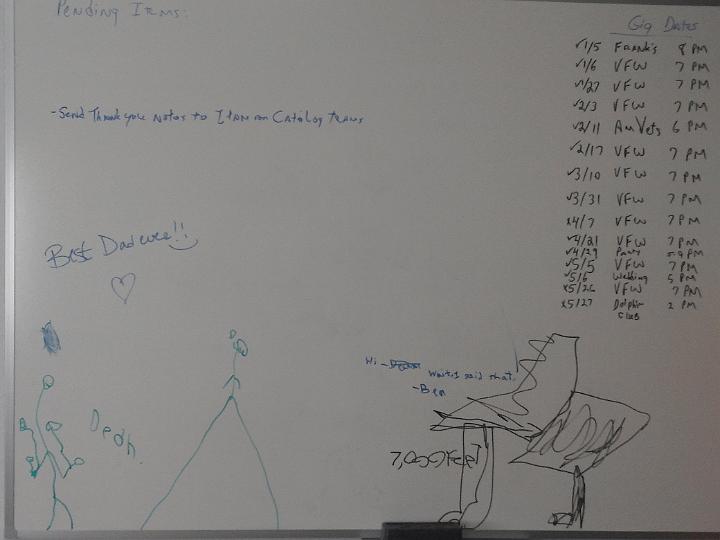 Pending Items:
-Send Thank you Notes to Item on Catalog teams
Best Dad ever!!
Hi -
Wait, I said that.
-Ben
7,000 Feet
Gig Dates
√1/5 Frank's 8 PM
√1/6 VFW 7 PM
√1/27 VFW 7 PM
√2/3 VFW 7 PM
√2/11 AmVets 6 PM
√2/17 VFW 7 PM
√3/10 VFW 7 PM
√3/31 VFW 7 PM
x4/7 VFW 7 PM
√4/21 VFW 7 PM
√4/29 Party 5-9 PM
√5/5 VFW 7 PM
√5/6 Wedding 5 PM
x5/26 VFW 7 PM
x5/27 Dolphin 2 PM
Club